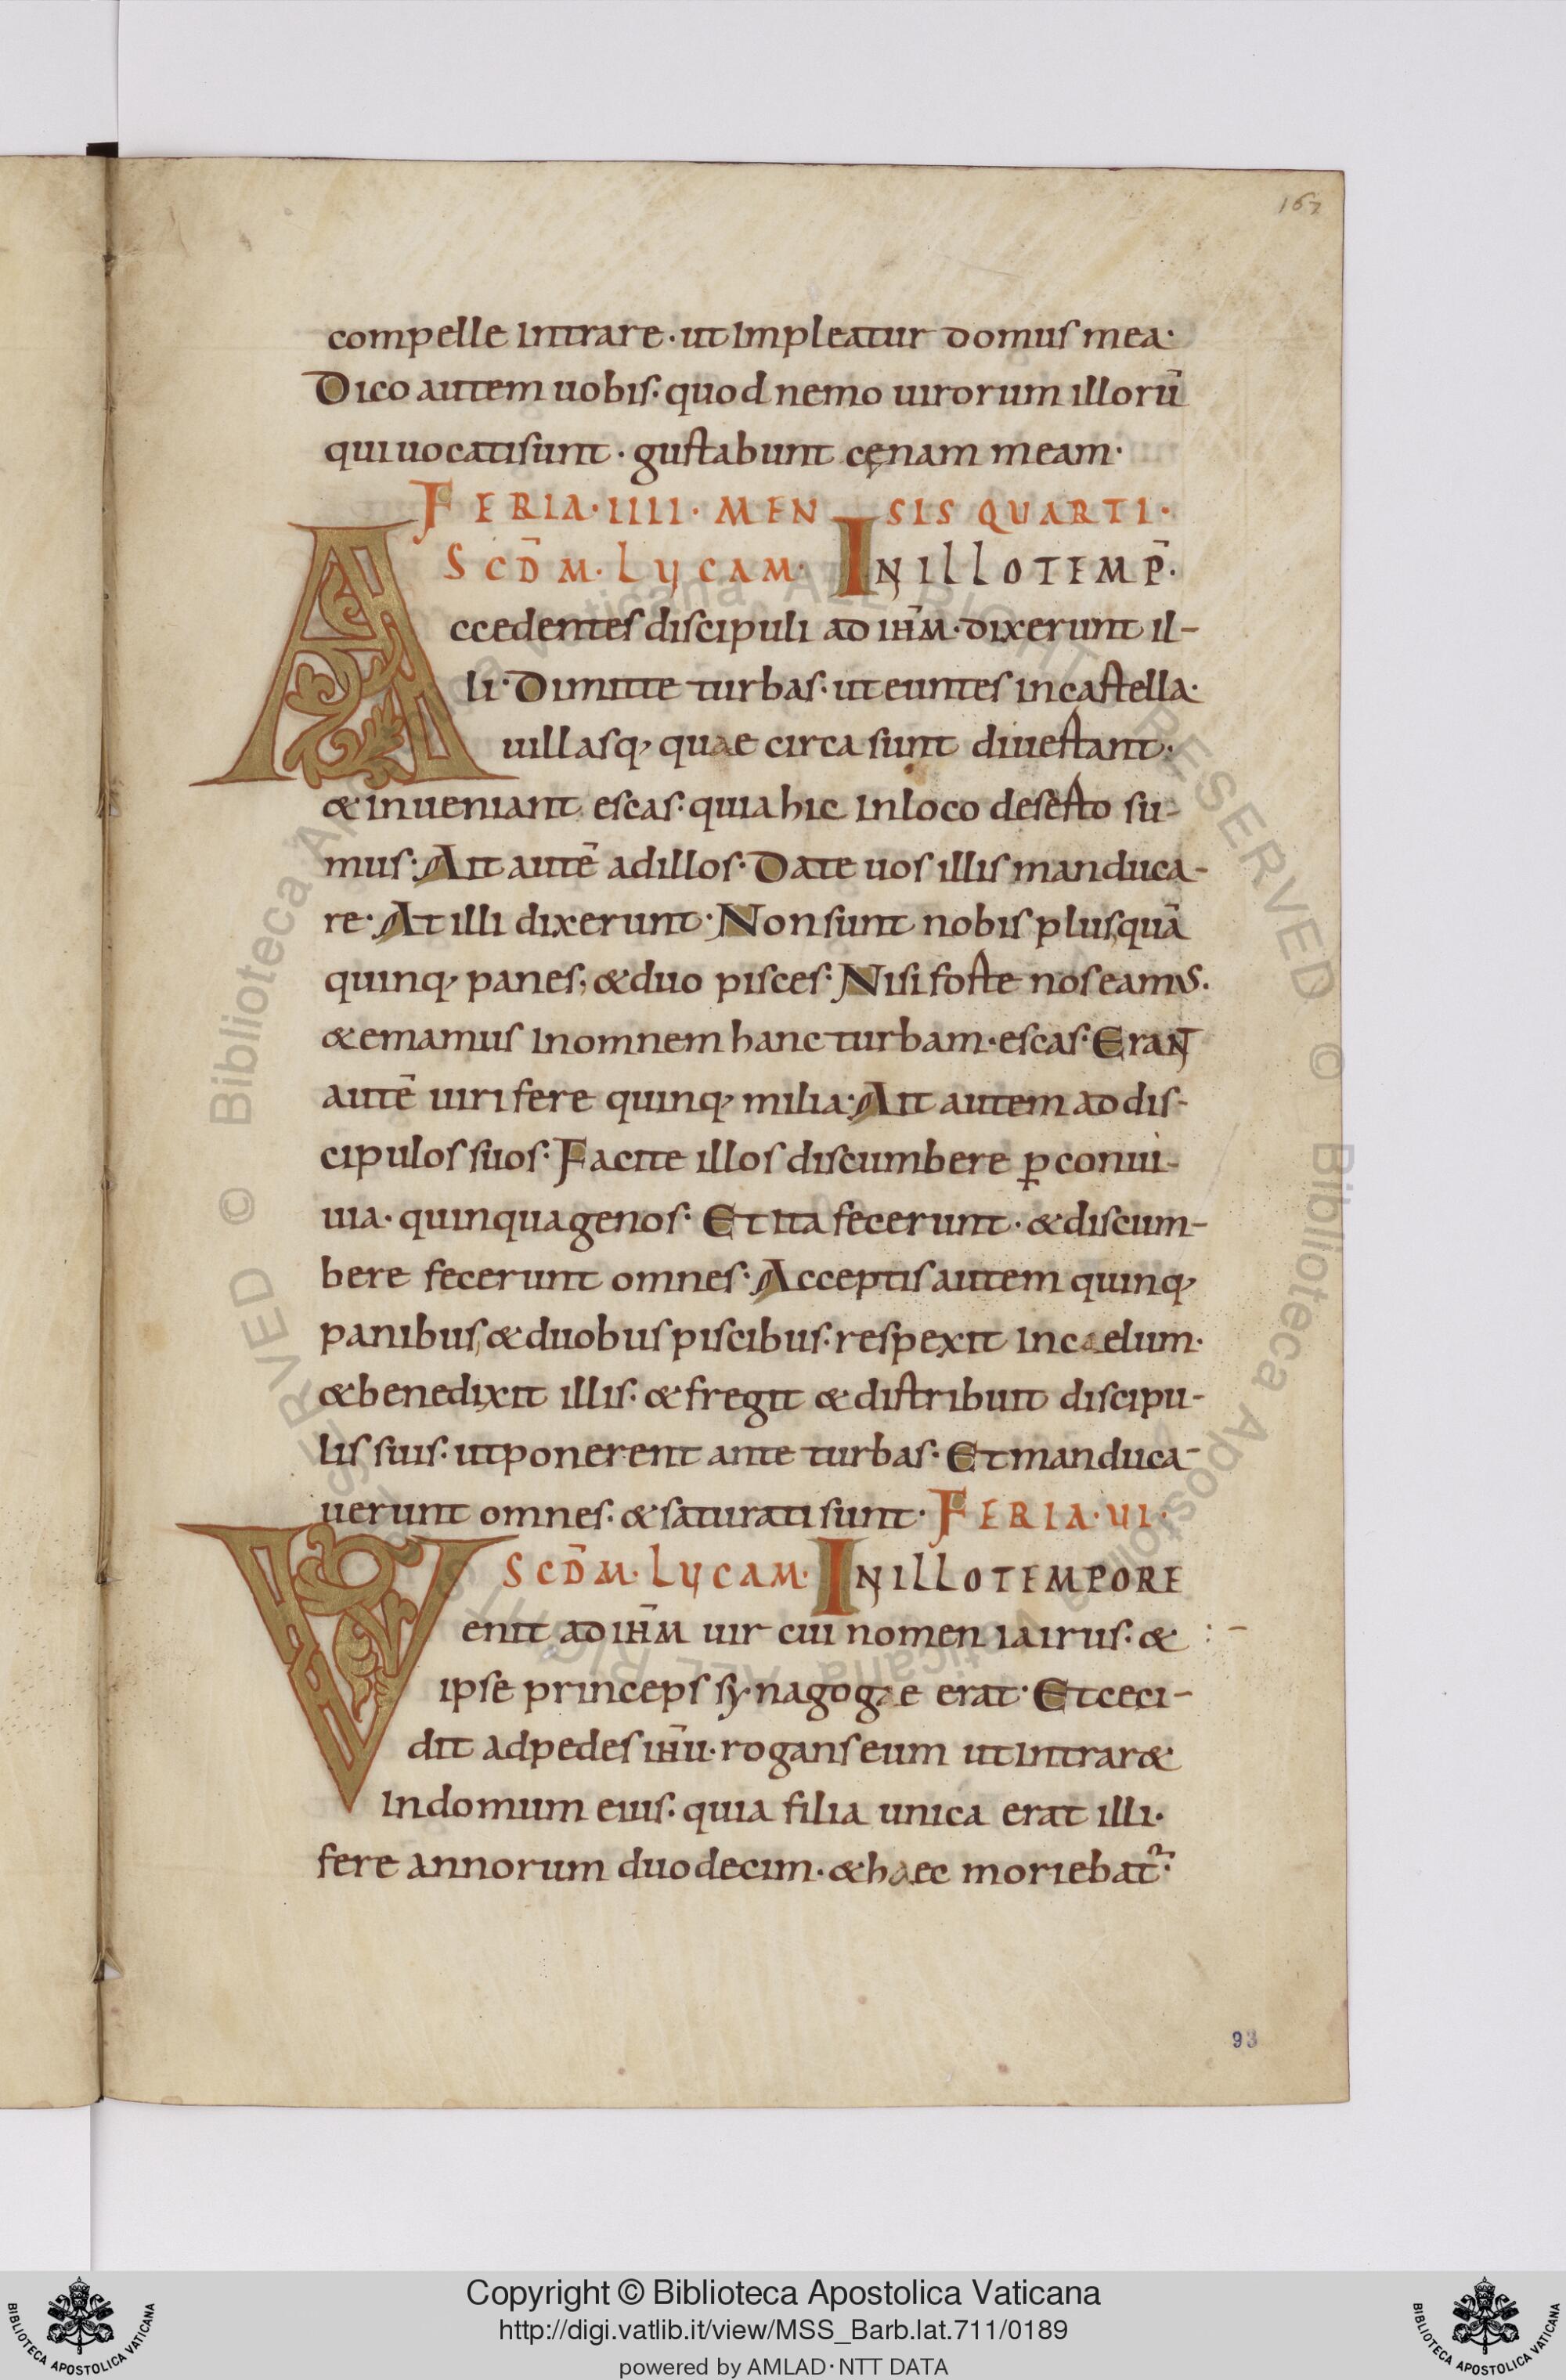 167
compelle intrare · ut impleatur domus mea ·
Dico autem uobis · quod nemo uirorum illorū
qui uocati sunt · gustabunt cęnam meam ·
FERIA · IIII · MENSIS QUARTI ·
SCD̄M · LYCAM · IN ILLO TEMP̄ ·
Accedentes discipuli ad ih̄m · dixerunt il-
li · Dimitte turbas · ut euntes in castella ·
uillasq, quae circa sunt diuertant ·
& inueniant escas · quia hic in loco deserto su-
mus · Ait autē ad illos · Date uos illis manduca-
re · At illi dixerunt · Non sunt nobis plus quā
quinq, panes, & duo pisces · Nisi forte nos eamus ·
& emamus in omnem hanc turbam · escas · Erant
autē uiri fere quinq, milia · Ait autem ad dis-
cipulos suos · Facite illos discumbere ꝑ conui-
uia · quinquagenos · Et ita fecerunt · & discum-
bere fecerunt omnes · Acceptis autem quinq,
panibus, & duobus piscibus · respexit in caelum ·
& benedixit illis · & fregit & distribuit discipu-
lis suis · ut ponerent ante turbas · Et manduca-
uerunt omnes · & saturati sunt · FERIA · VI ·
SCD̄M · LYCAM · IN ILLO TEMPORE
Venit ad ih̄m uir cui nomen iairus · & : -
ipse princeps synagogae erat · Et ceci-
dit ad pedes ih̄u · rogans eum ut intrar&
in domum eius · quia filia unica erat illi ·
fere annorum duodecim · & haec moriebat᷑ ·
93
© Biblioteca Apostolica Vaticana ALL RIGHTS RESERVED
Copyright © Biblioteca Apostolica Vaticana
http://digi.vatlib.it/view/MSS_Barb.lat.711/0189
powered by AMLAD · NTT DATA
BIBLIOTECA APOSTOLICA VATICANA
BIBLIOTECA APOSTOLICA VATICANA